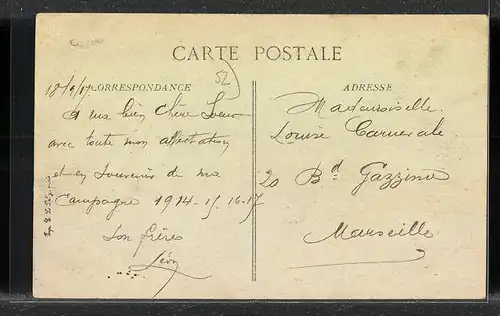 CARTE POSTALE
52
18/9/17 CORRESPONDANCE
A ma bien chère Sœur
avec toute mon affectation
et en souvenir de ma
Campagne 1914-15-16-17
Son frère
Léon
ADRESSE
Mademoiselle
Louise Carnevale
20 Bd Gazzino
Marseille